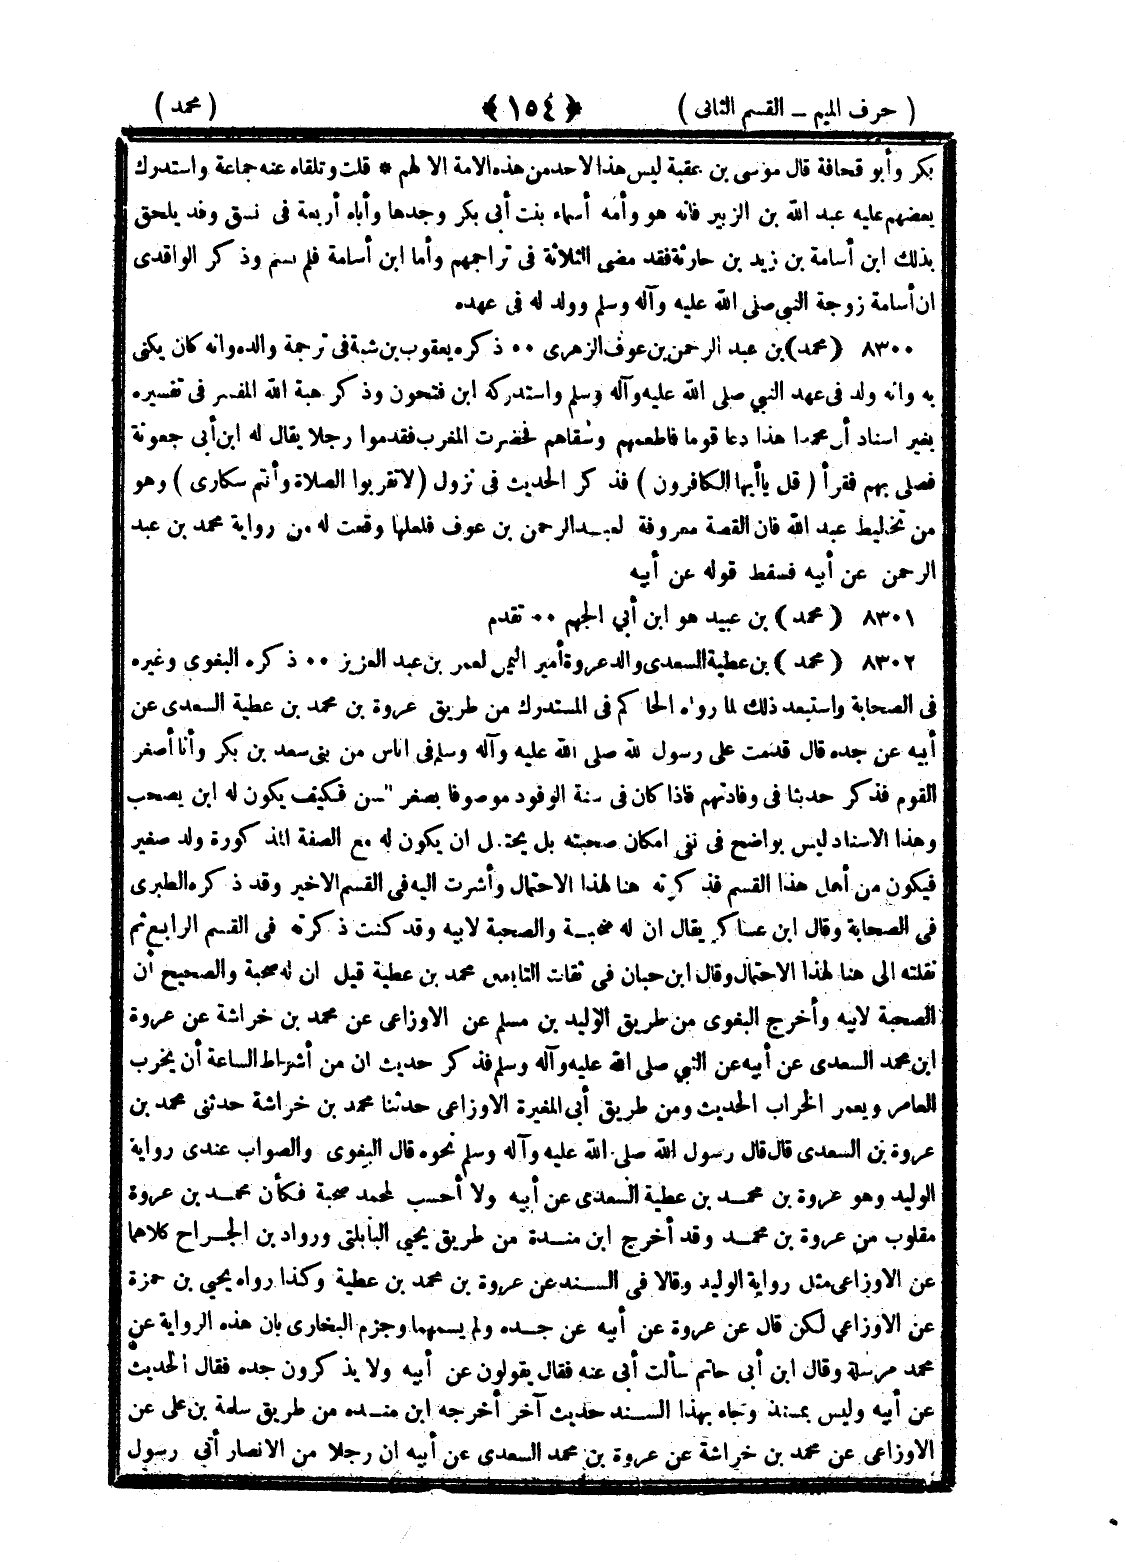 ( حرف الميم ــ القسم الثانى ) ﴿ ١٥٤ ﴾ ( محمد )
بكر وأبو قحافة قال موسى بن عقبة ليس هذا لاحد من هذه الامة الا لهم * قلت وتلقاه عنه جماعة واستدرك
بعضهم عليه عبد الله بن الزبير فانه هو وأمه أسماء بنت أبى بكر وجدها وأباه أربعة فى نسق وقد يلحق
بذلك ابن أسامة بن زيد بن حارثة فقد مضى الثلاثة فى تراجمهم وأما ابن أسامة فلم يسم وذكر الواقدى
ان أسامة زوجة النبي صلى الله عليه وآله وسلم وولد له فى عهده
٨٣٠٠ (محمد) بن عبد الرحمن بن عوف الزهرى ٠٠ ذكره يعقوب بن شبة فى ترجمة والده وانه كان يكنى
به وانه ولد فى عهد النبي صلى الله عليه وآله وسلم واستدركه ابن فتحون وذكر هبة الله المفسر فى تفسيره
بغير اسناد أن محمدا هذا دعا قوما فاطعمهم وسقاهم فحضرت المغرب فقدموا رجلا يقال له ابن أبى جعونة
فصلى بهم فقرأ ( قل ياأيها الكافرون ) فذكر الحديث فى نزول (لاتقربوا الصلاة وأنتم سكارى ) وهو
من تخليط عبد الله فان القصة معروفة لعبد الرحمن بن عوف فلعلها وقعت له من رواية محمد بن عبد
الرحمن عن أبيه فسقط قوله عن أبيه
٨٣٠١ ( محمد ) بن عبيد هو ابن أبي الجهم ٠٠ تقدم
٨٣٠٢ ( محمد ) بن عطية السعدى والد عروة أمير اليمن لعمر بن عبد العزيز ٠٠ ذكره البغوى وغيره
فى الصحابة واستبعد ذلك لما رواه الحاكم فى المستدرك من طريق عروة بن محمد بن عطية السعدى عن
أبيه عن جده قال قدمت على رسول الله صلى الله عليه وآله وسلم فى اناس من بنى سعد بن بكر وأنا أصغر
القوم فذكر حديثا فى وفادتهم فاذا كان فى سنة الوفود موصوفا بصغر السن فكيف يكون له ابن يصحب
وهذا الاسناد ليس بواضح فى نفى امكان صحبته بل يحتمل ان يكون له مع الصفة المذكورة ولد صغير
فيكون من أهل هذا القسم فذكرته هنا لهذا الاحتمال وأشرت اليه فى القسم الاخير وقد ذكره الطبرى
فى الصحابة وقال ابن عساكر يقال ان له صحبة والصحبة لابيه وقد كنت ذكرته فى القسم الرابع ثم
نقلته الى هنا لهذا الاحتمال وقال ابن حبان فى ثقات التابعين محمد بن عطية قيل ان له صحبة والصحيح أن
الصحبة لابيه وأخرج البغوى من طريق الوليد بن مسلم عن الاوزاعى عن محمد بن خراشة عن عروة
ابن محمد السعدى عن أبيه عن النبي صلى الله عليه وآله وسلم فذكر حديث ان من أشراط الساعة أن يخرب
العامر ويعمر الخراب الحديث ومن طريق أبى المغيرة الاوزاعى حدثنا محمد بن خراشة حدثنى محمد بن
عروة بن السعدى قال قال رسول الله صلى الله عليه وآله وسلم نحوه قال البغوى والصواب عندى رواية
الوليد وهو عروة بن محمد بن عطية السعدى عن أبيه ولا أحسب لمحمد صحبة فكأن محمد بن عروة
مقلوب من عروة بن محمد وقد أخرج ابن مندة من طريق يحيى البابلتى ورواد بن الجراح كلاهما
عن الاوزاعى مثل رواية الوليد وقالا فى السند عن عروة بن محمد بن عطية وكذا رواه يحيى بن حمزة
عن الاوزاعي لكن قال عن عروة عن أبيه عن جده ولم يسمهما وجزم البخارى بان هذه الرواية عن
محمد مرسلة وقال ابن أبي حاتم سألت أبى عنه فقال يقولون عن أبيه ولا يذكرون جده فقال الحديث
عن أبيه وليس بمسند وجاء بهذا السند حديث آخر أخرجه ابن منده من طريق سلمة بن على عن
الاوزاعى عن محمد بن خراشة عن عروة بن محمد السعدى عن أبيه ان رجلا من الانصار أتي رسول